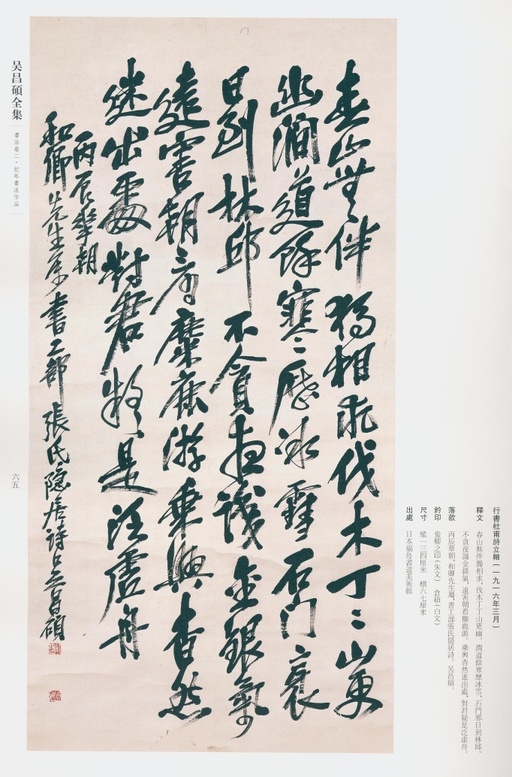 行書杜甫詩立軸(一九一六年三月)
釋文 春山無伴獨相求,伐木丁丁山更幽。澗道餘寒歷冰雪,石門邪日到林邱。
不貪夜識金銀氣,遠害朝看麋鹿游。乘興杳然迷出處,對君疑是泛虛舟。
落款 丙辰華朝,和卿先生屬,書工部張氏隱居詩。吴昌碩。
鈐印 俊卿之印(朱文) 倉碩(白文)
尺寸 縱一三四厘米 橫六七厘米
出處 日本福島書道美術館
春山無伴獨相求伐木丁〻山更
幽澗道餘寒〻歷冰雪石門衺
日到林邱不貪夜識金銀氣
遠害朝看麋鹿游乘興杳然
迷出處對君疑是泛虛舟
丙辰華朝
和卿先生屬書工部張氏隱居詩吳昌碩
吴昌碩全集
書法卷二·紀年書法作品
六五